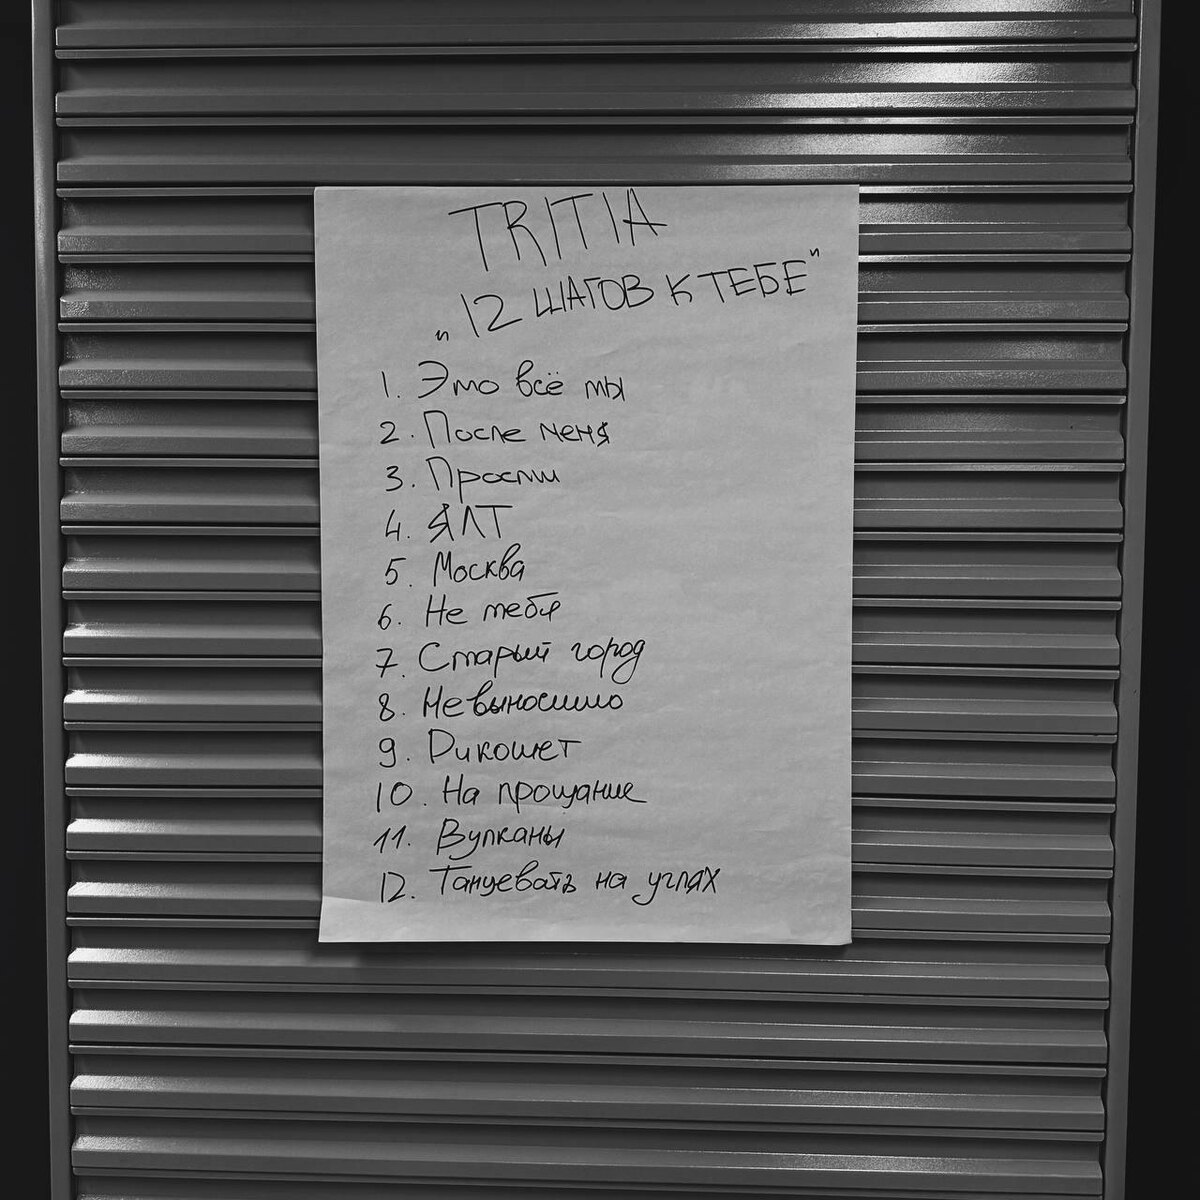 TRITIA
„12 ШАГОВ К ТЕБЕ"
1. Это всё ты
2. После меня
3. Прости
4. ЯЛТ
5. Москва
6. Не тебя
7. Старый город
8. Невыносимо
9. Рикошет
10. На прощание
11. Вулканы
12. Танцевать на углях